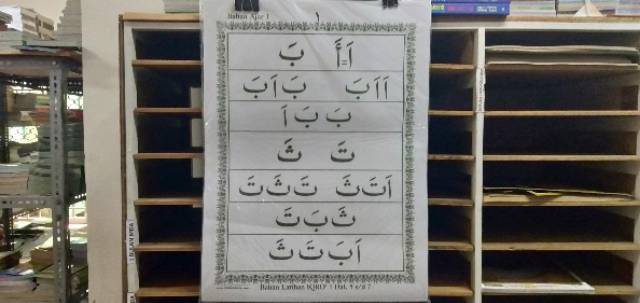 Bahan Ajar 1
١
اَ=أَ بَ
اَ اَ بَ بَ اَ بَ
بَ بَ اَ
تَ ثَ
اَ تَ ثَ تَ ثَ تَ
ثَ بَ تَ
اَ بَ تَ ثَ
Bahan Latihan IQRO' 1 Hal. ٩ s/d ?